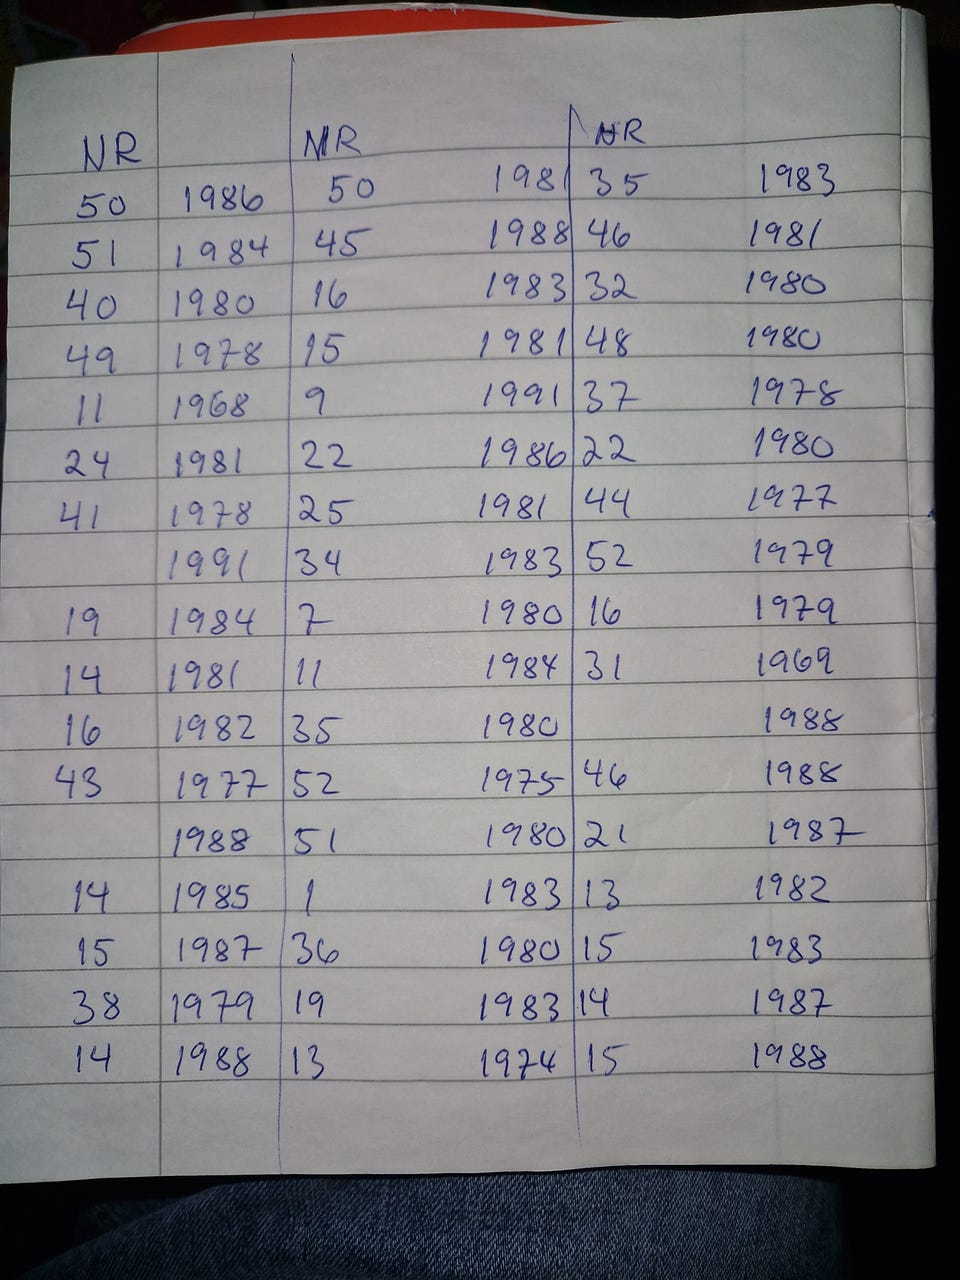 NR NR NR
50 1986 50 1981 35 1983
51 1984 45 1988 46 1981
40 1980 16 1983 32 1980
49 1978 15 1981 48 1980
11 1968 9 1991 37 1978
24 1981 22 1986 22 1980
41 1978 25 1981 44 1977
1991 34 1983 52 1979
19 1984 7 1980 16 1979
14 1981 11 1984 31 1969
16 1982 35 1980 1988
43 1977 52 1975 46 1988
1988 51 1980 21 1987
14 1985 1 1983 13 1982
15 1987 36 1980 15 1983
38 1979 19 1983 14 1987
14 1988 13 1974 15 1988